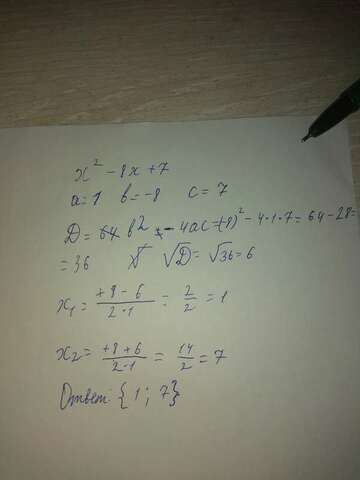 x² - 8x + 7
a = 1 b = -8 c = 7
D = b² - 4ac = (-8)² - 4·1·7 = 64 - 28 =
= 36 √D = √36 = 6
x₁ = (+8 - 6)/(2·1) = 2/2 = 1
x₂ = (+8 + 6)/(2·1) = 14/2 = 7
Ответ: {1; 7}